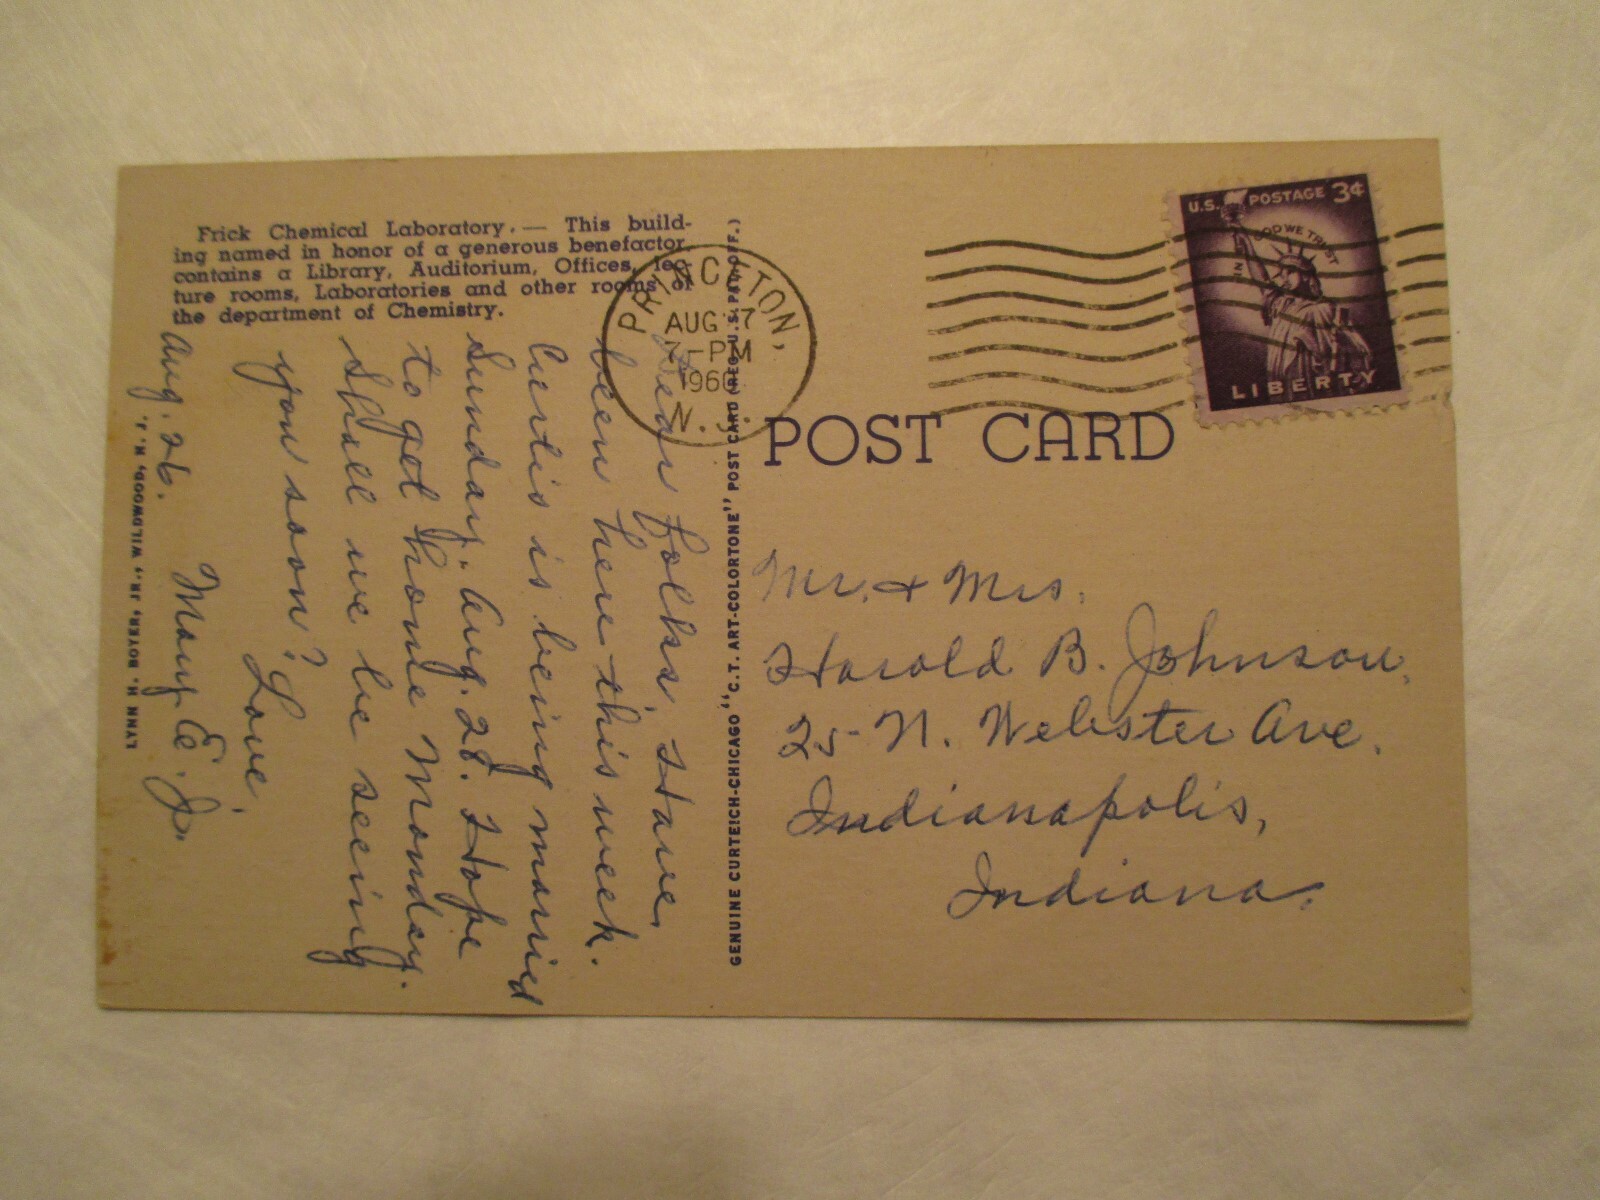 Frick Chemical Laboratory. — This build-
ing named in honor of a generous benefactor,
contains a Library, Auditorium, Offices, lec-
ture rooms, Laboratories and other rooms of
the department of Chemistry.
Aug. 26.
Dear folks, Have
been here this week.
Curtis is being married
Sunday. Aug. 28. Hope
to get home Monday.
Shall we be seeing
you soon?
Love,
Mary E. J.
LYNN H. BOYER, JR., WILDWOOD, N. J.
GENUINE CURTEICH-CHICAGO "C.T. ART-COLORTONE" POST CARD (REG. U.S. PAT. OFF.)
PRINCETON,
AUG 7
7-PM
1960
N.J.
U.S. POSTAGE 3¢
IN GOD WE TRUST
LIBERTY
POST CARD
Mr. & Mrs.
Harold B. Johnson,
25 N. Webster Ave.
Indianapolis,
Indiana.